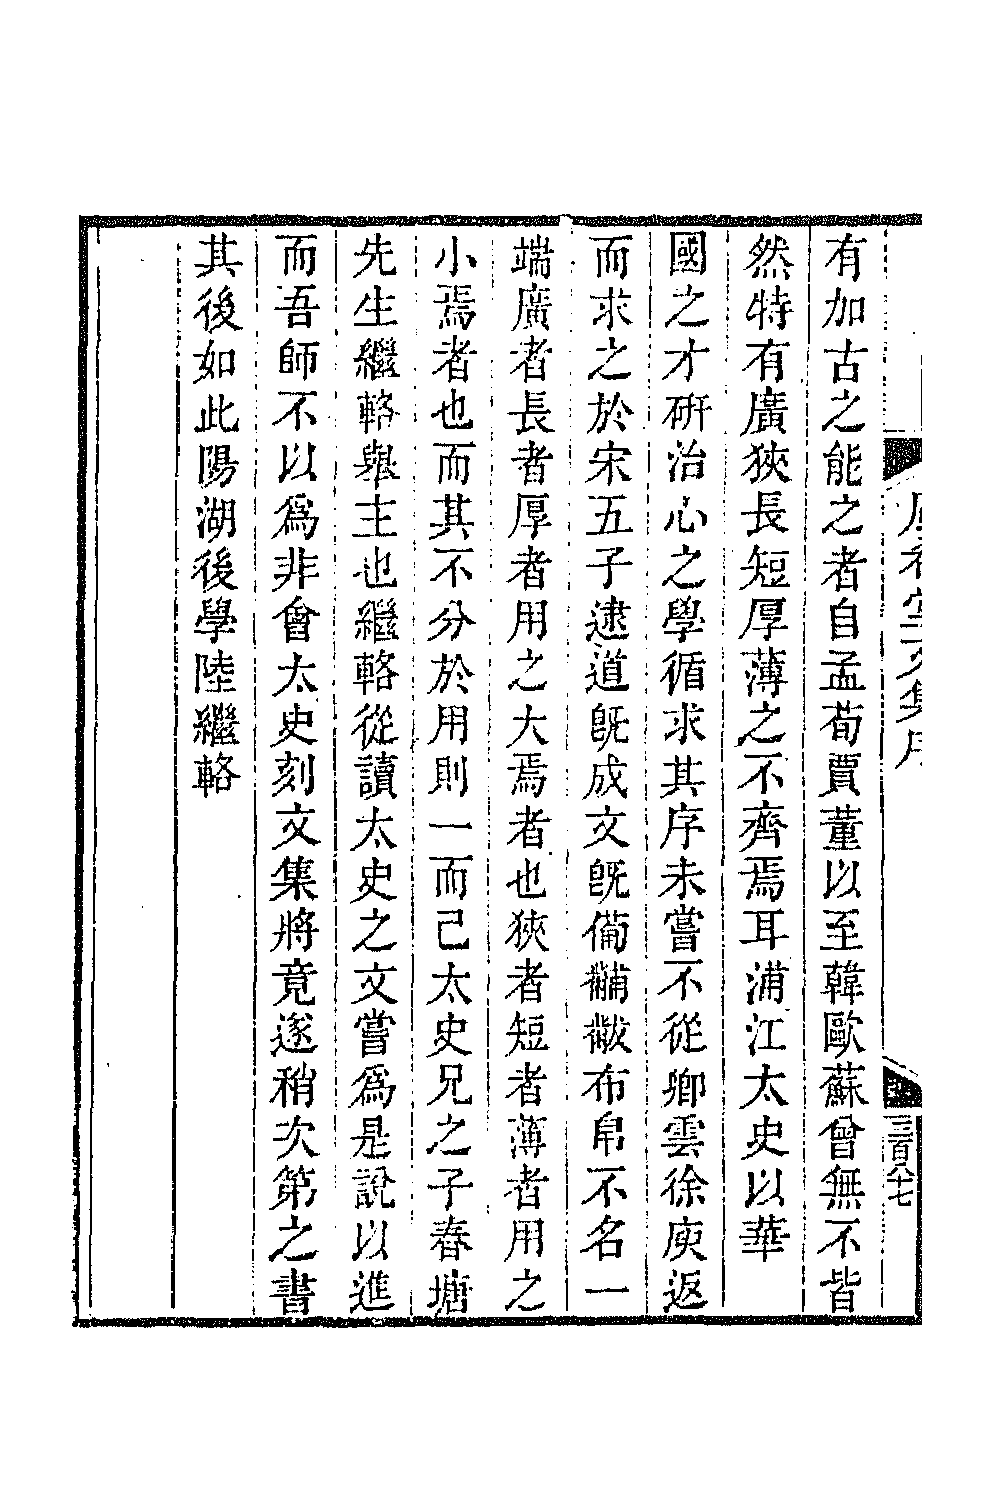 有加古之能之者自孟荀賈董以至韓歐蘇曾無不皆
然特有廣狹長短厚薄之不齊焉耳浦江太史以華
國之才硏治心之學循求其序未嘗不從卿雲徐庾返
而求之於宋五子逮道旣成文旣備黼黻布帛不名一
端廣者長者厚者用之大焉者也狹者短者薄者用之
小焉者也而其不分於用則一而已太史兄之子春塘
先生繼輅舉主也繼輅從讀太史之文嘗爲是說以進
而吾師不以爲非會太史刻文集將竟遂稍次第之書
其後如此陽湖後學陸繼輅
文集序
三百八十七